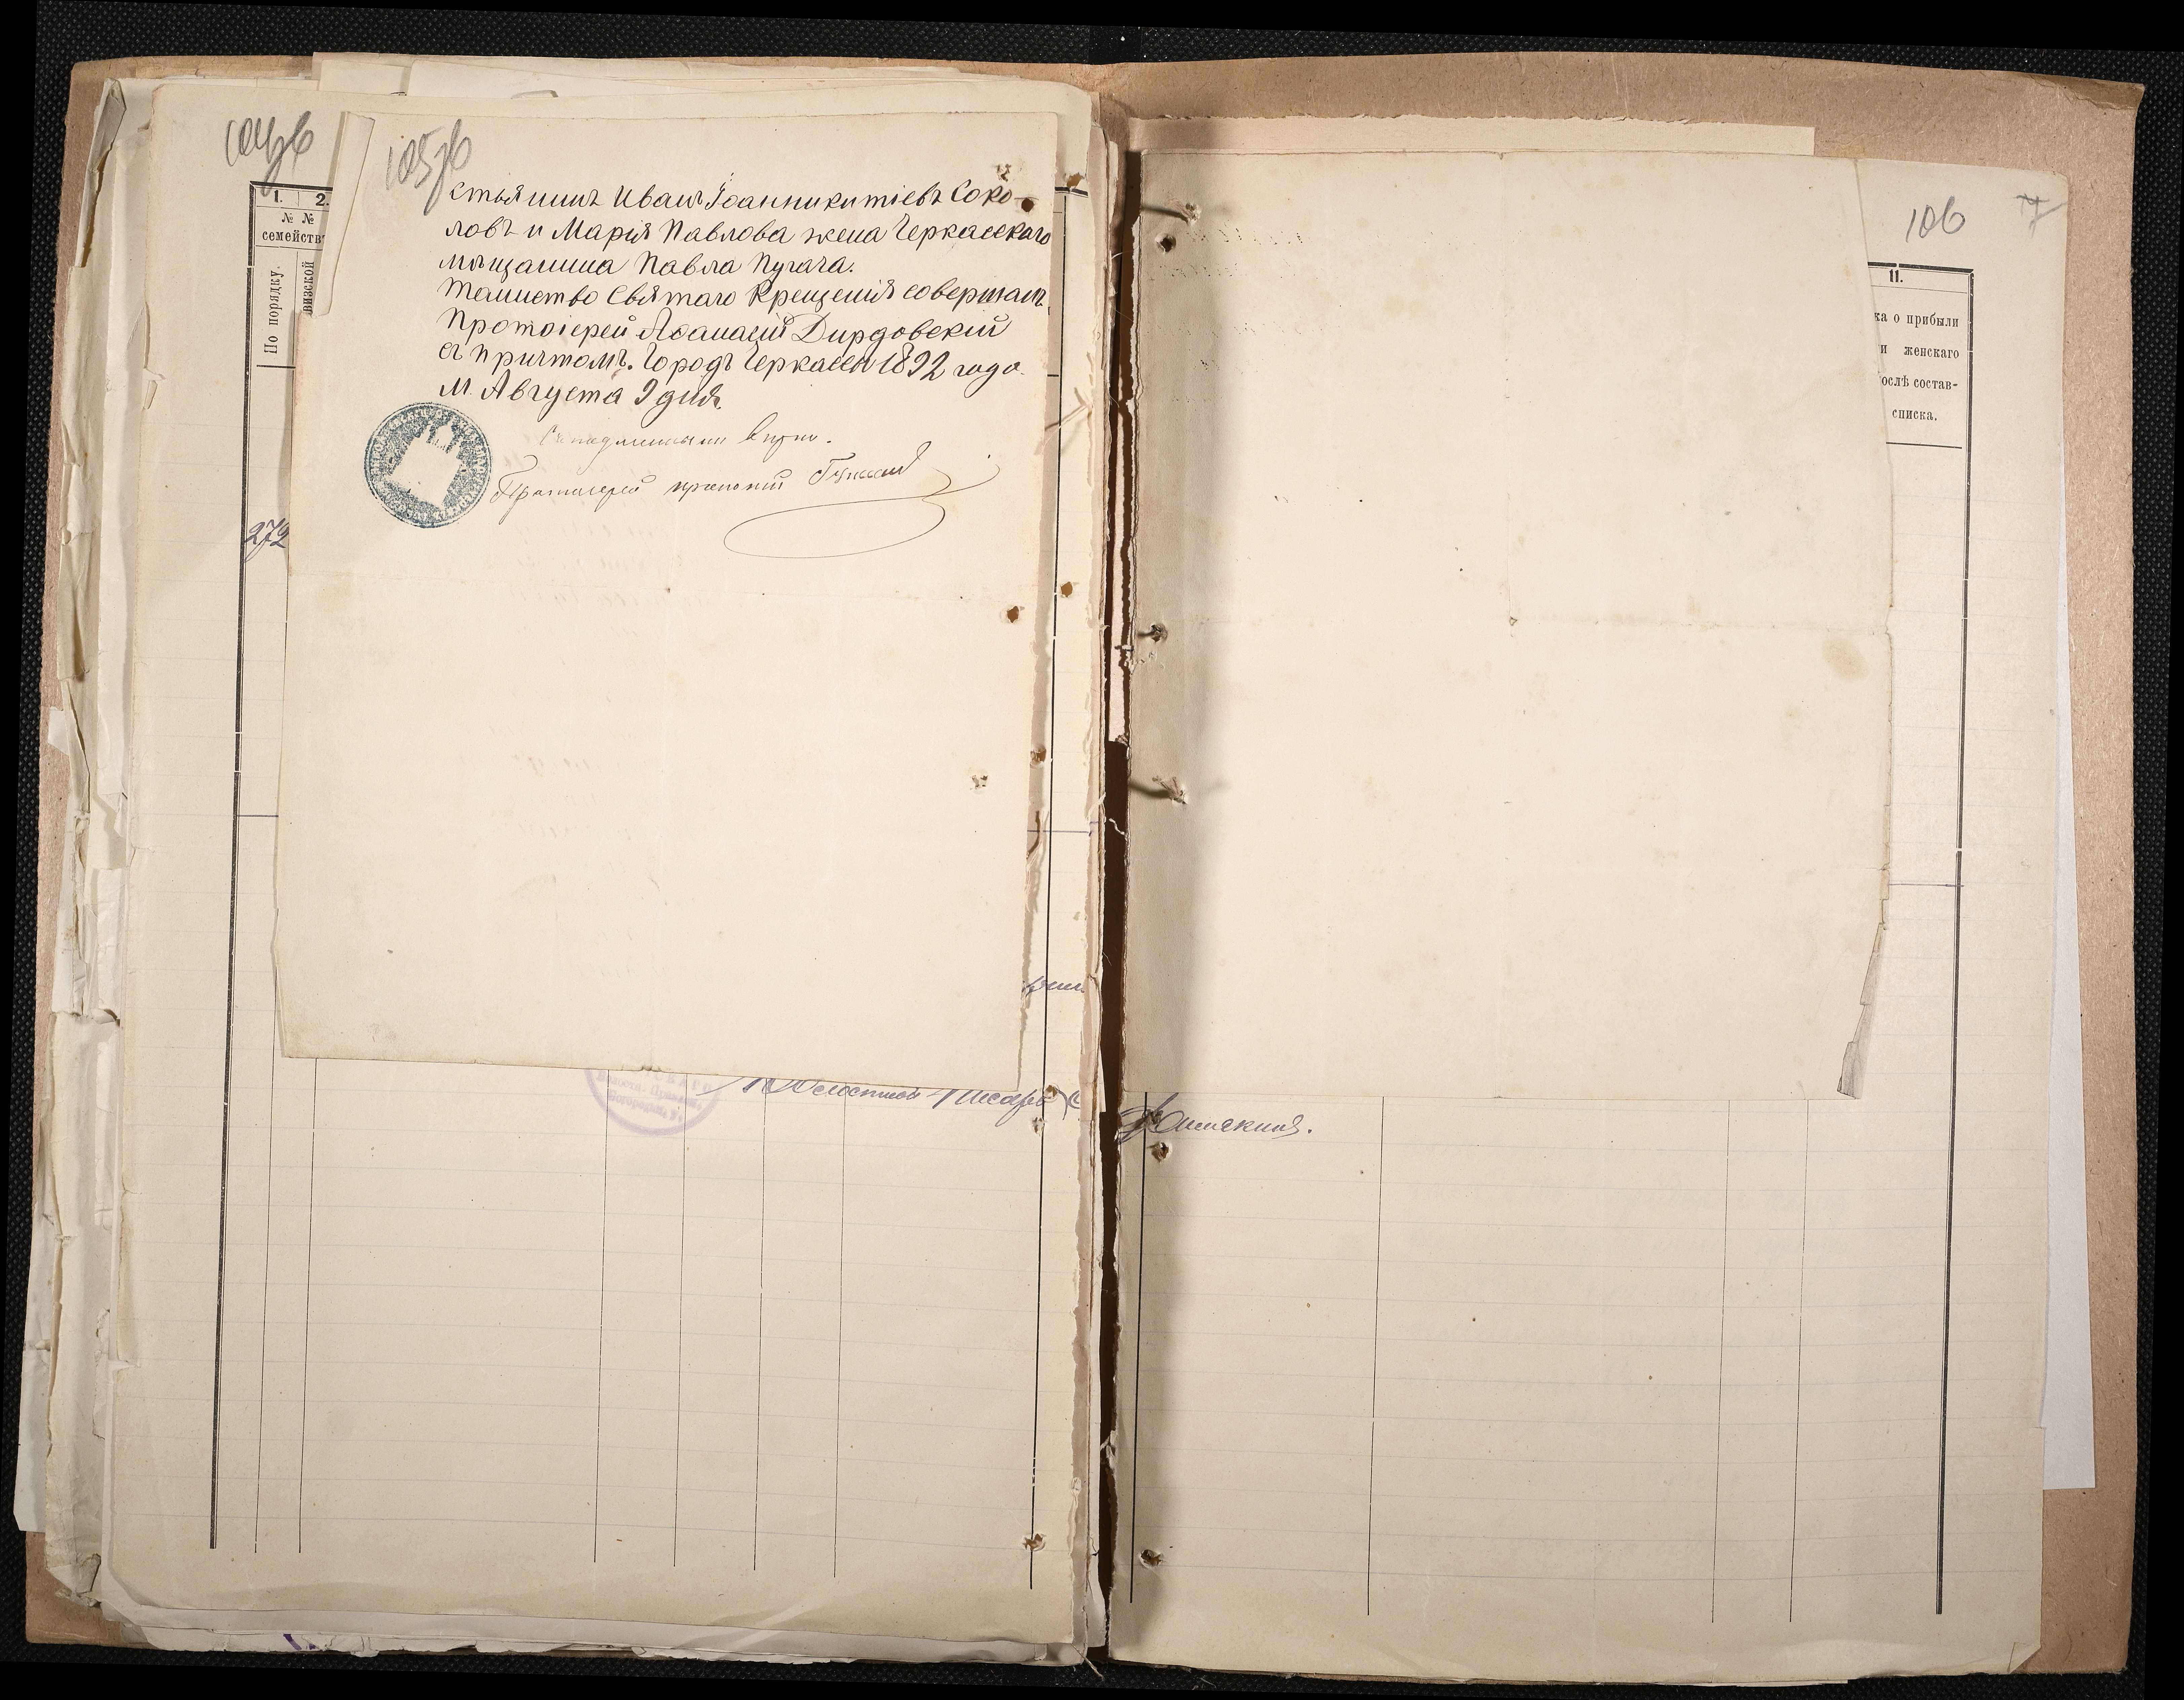 104об
105об
1. 2.
№ №
семейств
По порядку.
визской
272
стьянинъ Иванъ Іоанникитіевъ Соко-
ловъ и Марія Павлова жена Черкасскаго
мѣщанина Павла Пугача.
Таинство Святаго Крещенія совершалъ
Протоіерей Аѳанасій Дирдовскій
съ причтомъ. Городъ Черкассы 1892 года
М. Августа 9 дня.
Съ подлиннымъ вѣрно.
Протоіерей
Волостной Писарь
106
11.
ка о прибыли
и женскаго
ослѣ состав-
списка.